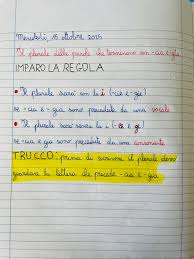 Mercoledì, 16 ottobre 2015
Il plurale delle parole che terminano con -cia e -gia
IMPARO LA REGOLA
• Il plurale sarà con la i (-cie e -gie)
se -cia e -gia sono precedute da una vocale
• Il plurale sarà senza la i (-ce e -ge)
se -cia e -gia sono precedute da una consonante
TRUCCO: prima di scrivere il plurale devo
guardare la lettera che precede -cia e -gia